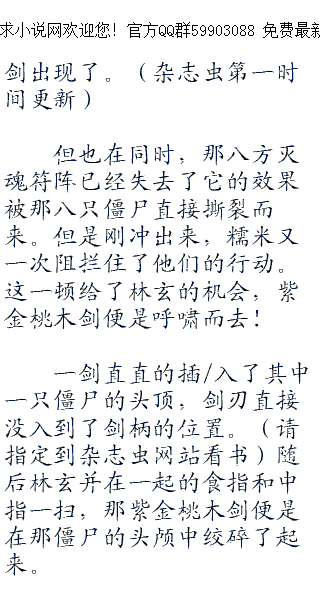 求小说网欢迎您！官方QQ群59903088 免费最新
剑出现了。（杂志虫第一时
间更新）
但也在同时，那八方灭
魂符阵已经失去了它的效果
被那八只僵尸直接撕裂而
来。但是刚冲出来，糯米又
一次阻拦住了他们的行动。
这一顿给了林玄的机会，紫
金桃木剑便是呼啸而去！
一剑直直的插/入了其中
一只僵尸的头顶，剑刃直接
没入到了剑柄的位置。（请
指定到杂志虫网站看书）随
后林玄并在一起的食指和中
指一扫，那紫金桃木剑便是
在那僵尸的头颅中绞碎了起
来。